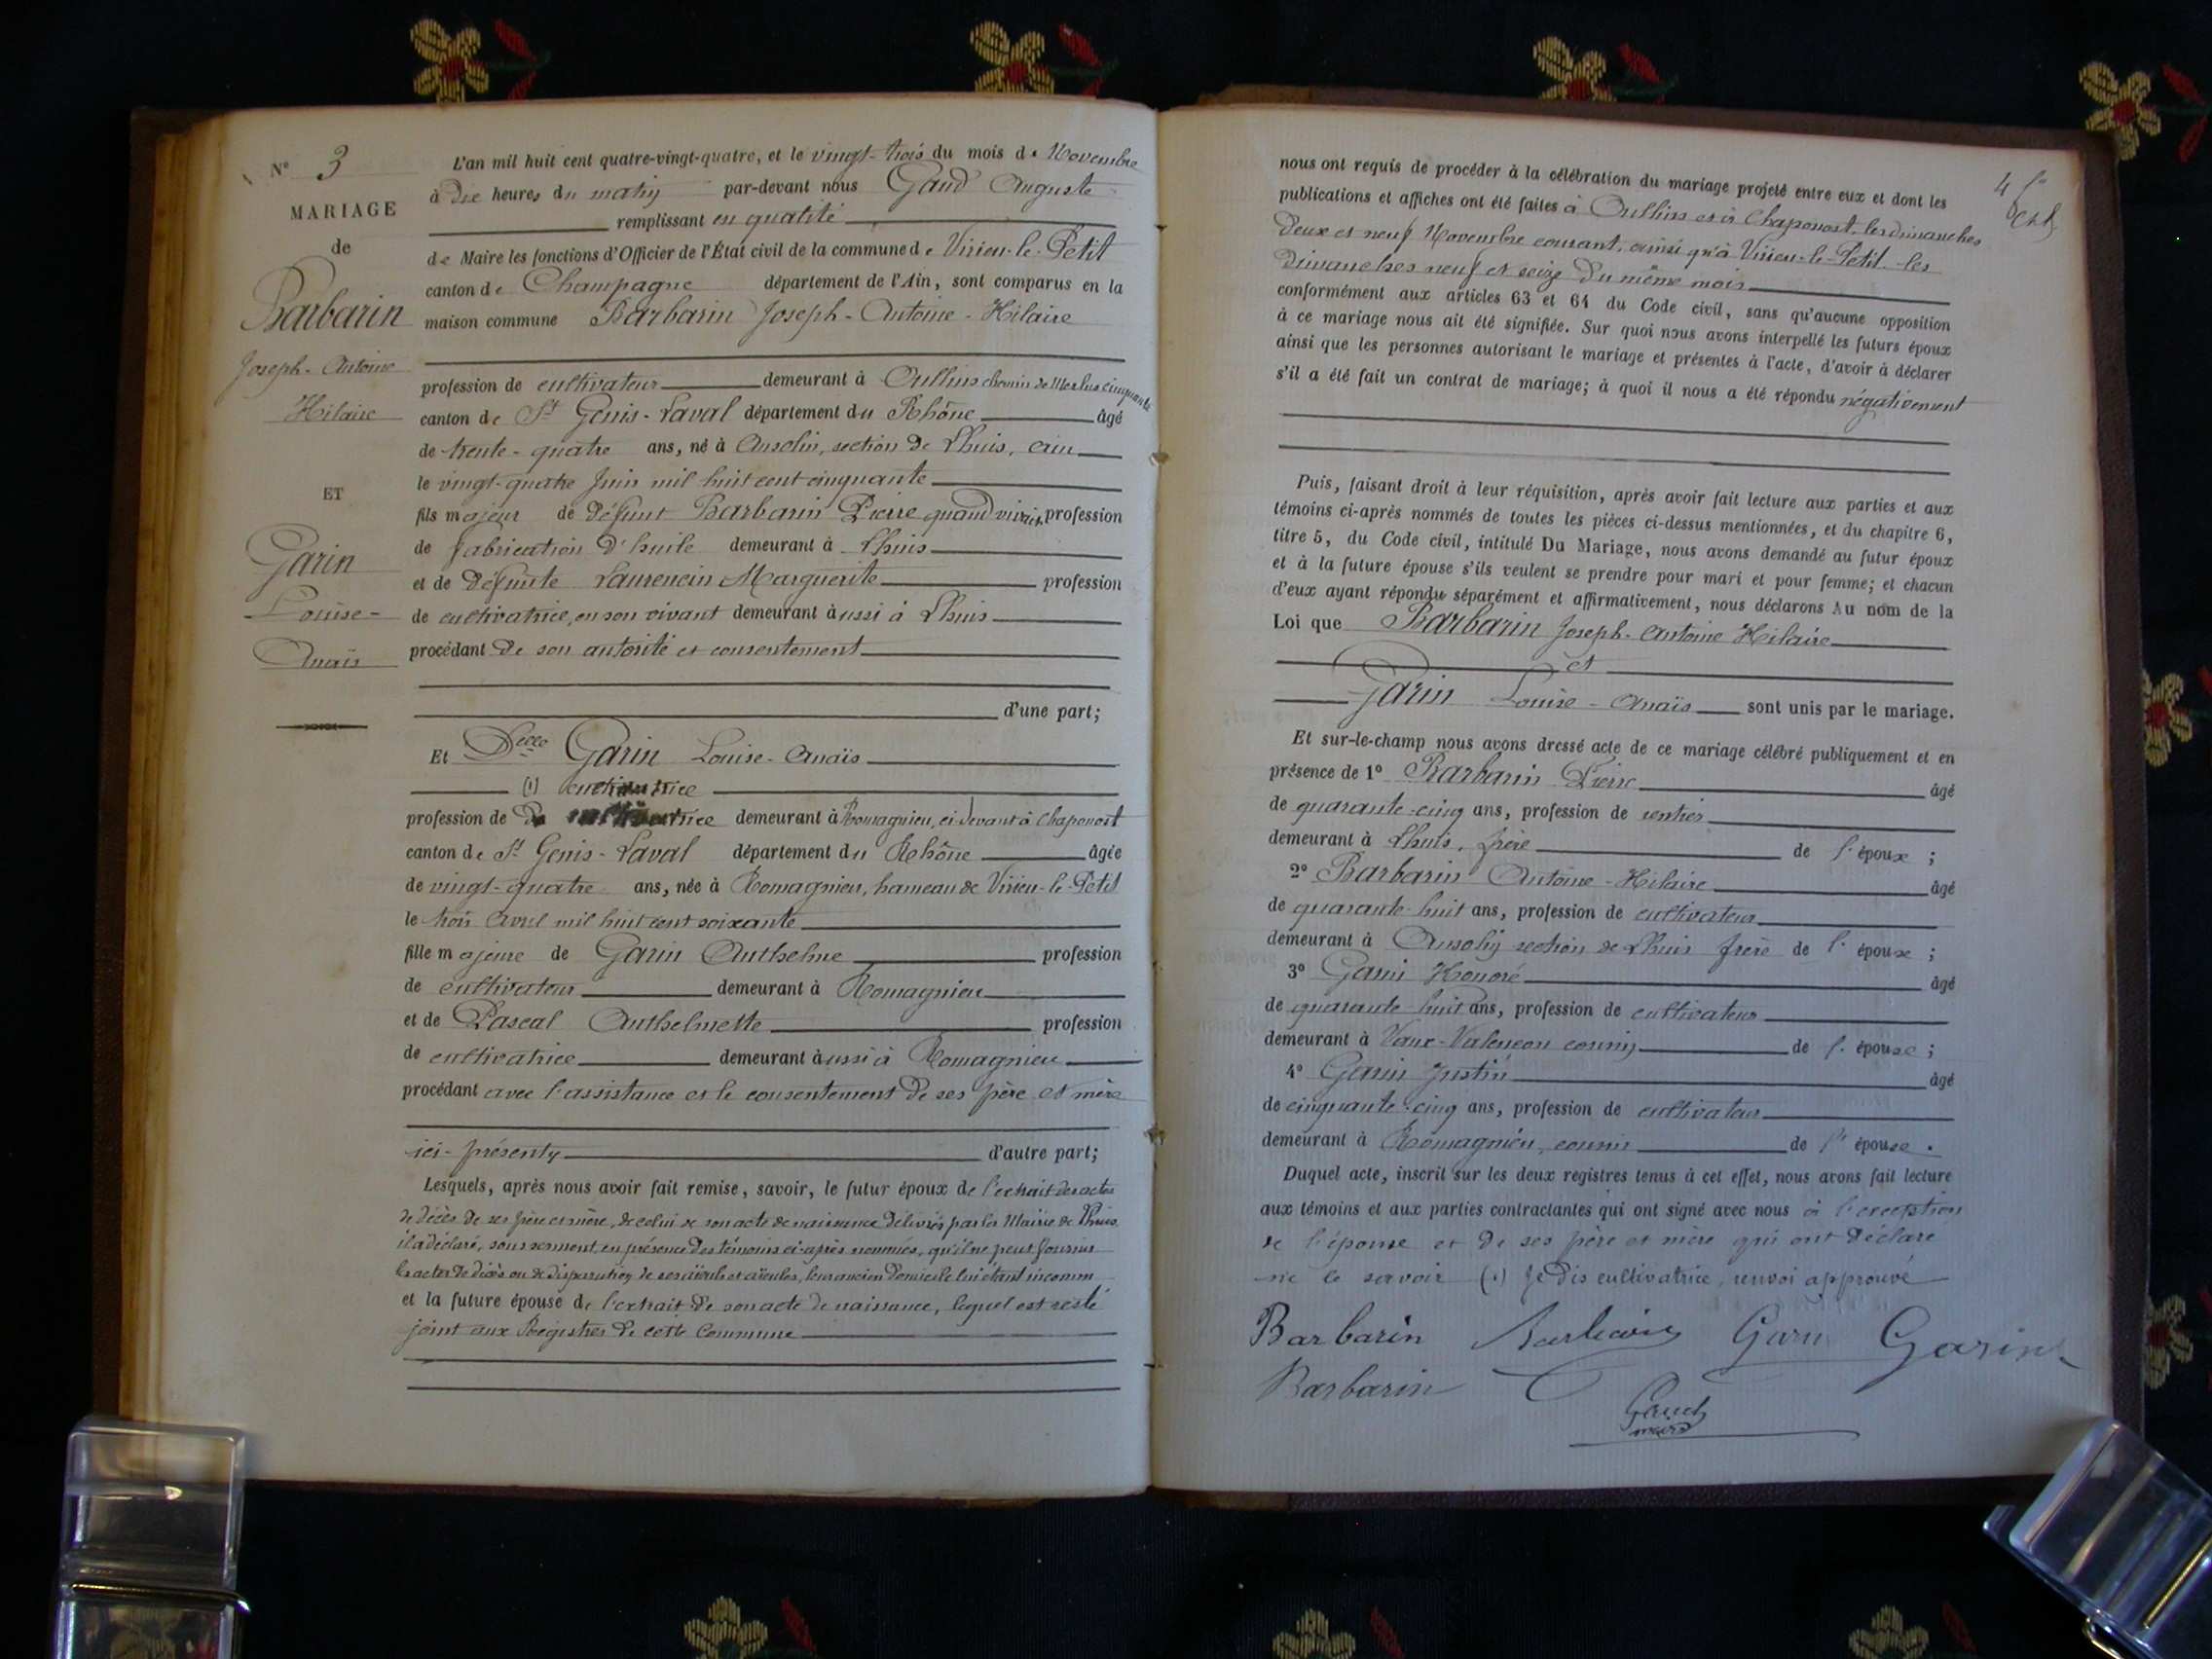 N° 3
MARIAGE
de
Barbarin
Joseph-Antoine
Hilaire
ET
Garin
Louise-
Anaïs
L'an mil huit cent quatre-vingt-quatre, et le vingt-trois du mois de Novembre
à dix heures du matin par-devant nous Gaud Auguste
remplissant en qualité
de Maire les fonctions d'Officier de l'État civil de la commune de Virieu-le-Petit
canton de Champagne département de l'Ain, sont comparus en la
maison commune Barbarin Joseph-Antoine-Hilaire
profession de cultivateur demeurant à Oullins chemin de Merlus cinquante
canton de St Genis-Laval département du Rhône âgé
de trente-quatre ans, né à Ansolin, section de Lhuis, Ain
le vingt-quatre Juin mil huit cent cinquante
fils majeur de défunt Barbarin Pierre quand vivait profession
de fabrication d'huile demeurant à Lhuis
et de défunte Laurencin Marguerite profession
de cultivatrice, en son vivant demeurant aussi à Lhuis
procédant de son autorité et consentement
d'une part;
Et Delle Garin Louise-Anaïs
(1) cultivatrice
profession de demeurant à Romagnieu, ci-devant à Chaponost
canton de St Genis-Laval département du Rhône âgée
de vingt-quatre ans, née à Romagnieu, hameau de Virieu-le-Petit
le trois Avril mil huit cent soixante
fille majeure de Garin Anthelme profession
de cultivateur demeurant à Romagnieu
et de Pascal Anthelmette profession
de cultivatrice demeurant aussi à Romagnieu
procédant avec l'assistance et le consentement de ses père et mère
ici-présents d'autre part;
Lesquels, après nous avoir fait remise, savoir, le futur époux de l'extrait des actes
de décès de ses père et mère, de celui de son acte de naissance délivrés par la Mairie de Lhuis,
il a déclaré, sous serment, en présence des témoins ci-après nommés, qu'il ne peut fournir
les actes de décès ou de disparution de ses aïeuls et aïeules, leur ancien domicile lui étant inconnu
et la future épouse de l'extrait de son acte de naissance, lequel est resté
joint aux Registres de cette Commune
nous ont requis de procéder à la célébration du mariage projeté entre eux et dont les
publications et affiches ont été faites à Oullins et à Chaponost, les dimanches
deux et neuf Novembre courant, ainsi qu'à Virieu-le-Petit les
dimanches neuf et seize du même mois
conformément aux articles 63 et 64 du Code civil, sans qu'aucune opposition
à ce mariage nous ait été signifiée. Sur quoi nous avons interpellé les futurs époux
ainsi que les personnes autorisant le mariage et présentes à l'acte, d'avoir à déclarer
s'il a été fait un contrat de mariage; à quoi il nous a été répondu négativement
Puis, faisant droit à leur réquisition, après avoir fait lecture aux parties et aux
témoins ci-après nommés de toutes les pièces ci-dessus mentionnées, et du chapitre 6,
titre 5, du Code civil, intitulé Du Mariage, nous avons demandé au futur époux
et à la future épouse s'ils veulent se prendre pour mari et pour femme; et chacun
d'eux ayant répondu séparément et affirmativement, nous déclarons Au nom de la
Loi que Barbarin Joseph-Antoine Hilaire
et
Garin Louise-Anaïs sont unis par le mariage.
Et sur-le-champ nous avons dressé acte de ce mariage célébré publiquement et en
présence de 1° Barbarin Pierre âgé
de quarante-cinq ans, profession de rentier
demeurant à Lhuis, frère de l'époux ;
2° Barbarin Antoine-Hilaire âgé
de quarante-huit ans, profession de cultivateur
demeurant à Ansolin section de Lhuis frère de l'époux ;
3° Garin Honoré âgé
de quarante-huit ans, profession de cultivateur
demeurant à cousin de l'épouse ;
4° Garin Justin âgé
de cinquante-cinq ans, profession de cultivateur
demeurant à Romagnieu, cousin de l'épouse .
Duquel acte, inscrit sur les deux registres tenus à cet effet, nous avons fait lecture
aux témoins et aux parties contractantes qui ont signé avec nous à l'exception
de l'épouse et de ses père et mère qui ont déclaré
ne le savoir (1) Je dis cultivatrice, renvoi approuvé
Barbarin Barbarin Garin Garin
Barbarin
Gaud
maire